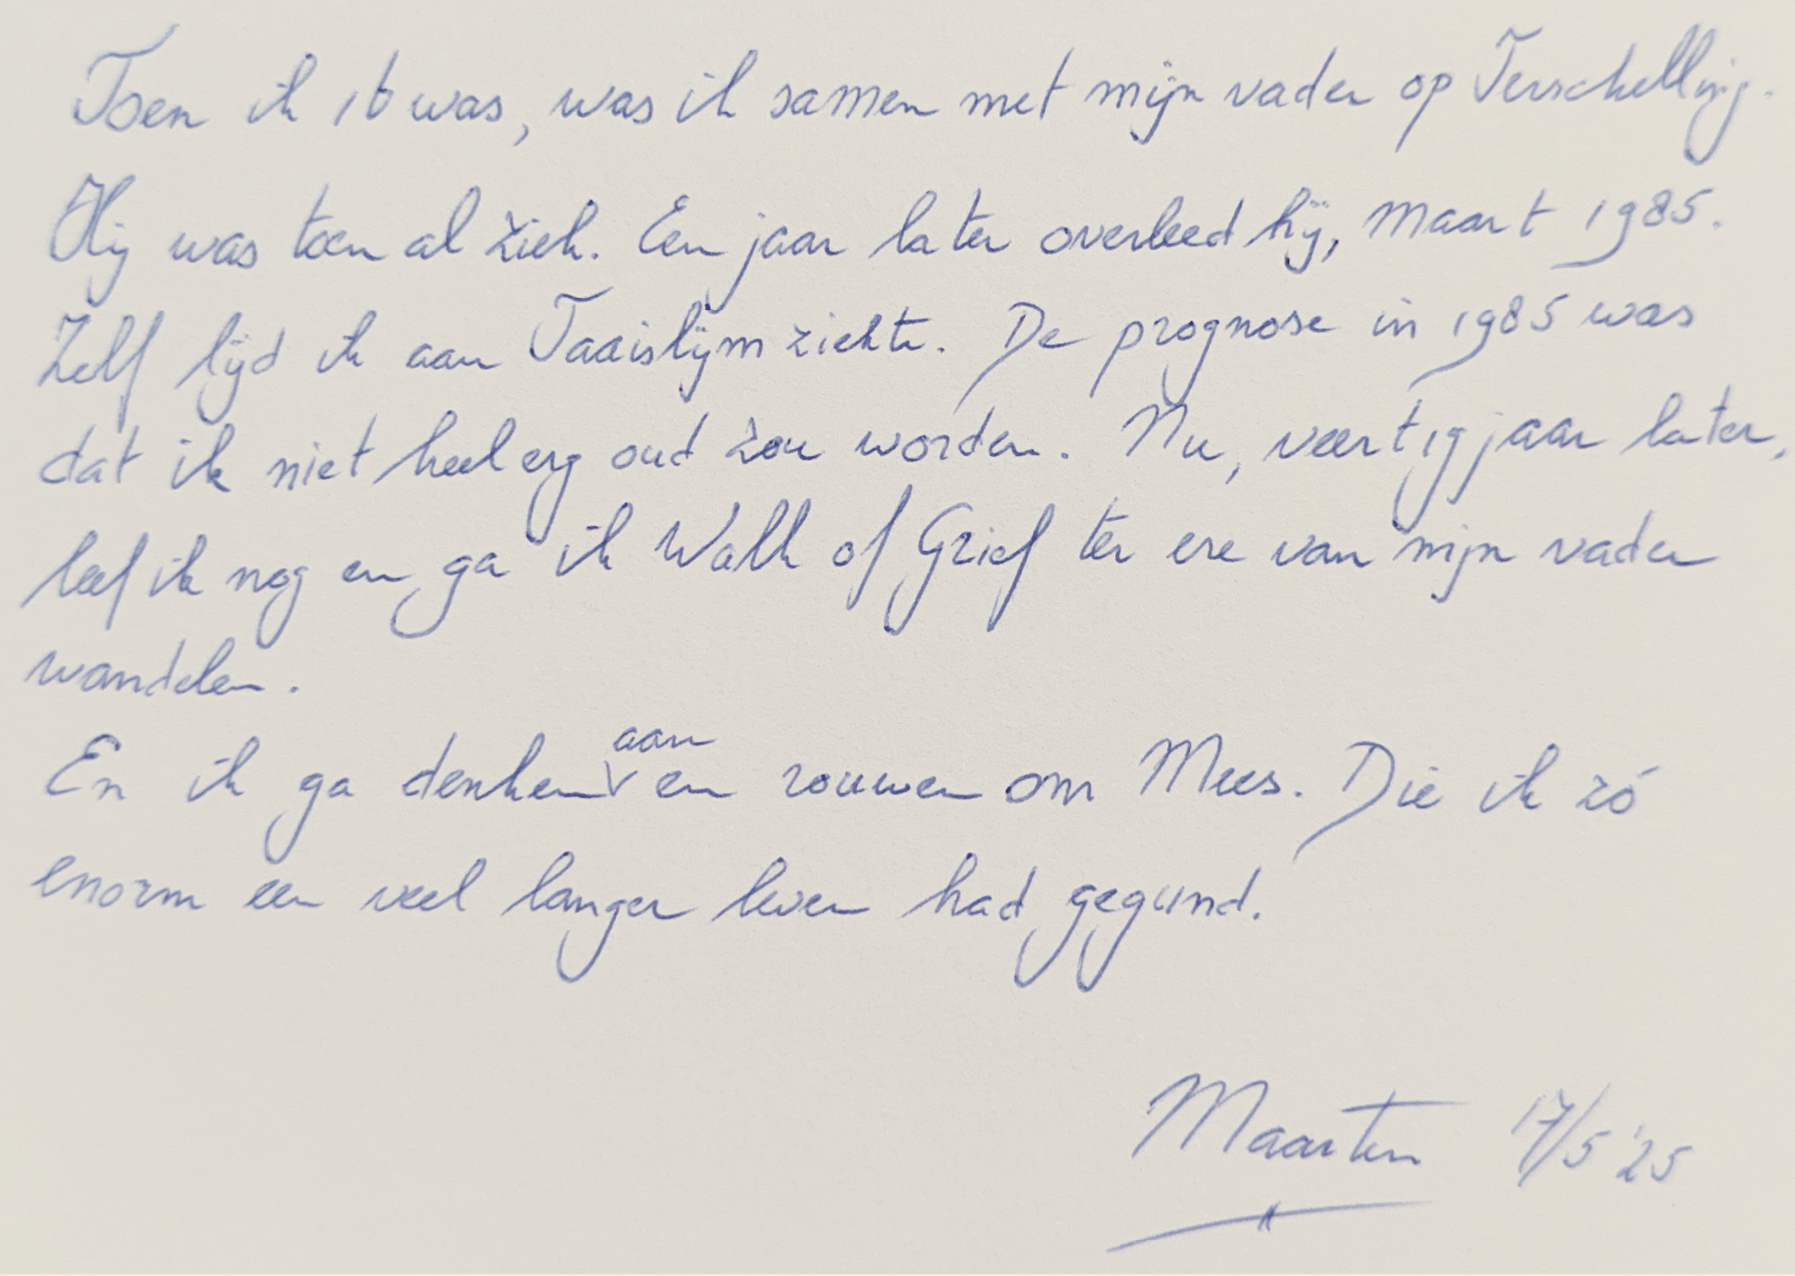 Toen ik 16 was, was ik samen met mijn vader op Terschelling.
Hij was toen al ziek. Een jaar later overleed hij, maart 1985.
Zelf lijd ik aan Taaislijmziekte. De prognose in 1985 was
dat ik niet heel erg oud zou worden. Nu, veertig jaar later,
leef ik nog en ga ik Walk of Grief ter ere van mijn vader
wandelen.
En ik ga denken aan en rouwen om Mees. Die ik zó
enorm een veel langer leven had gegund.
Maarten 17/5 '25